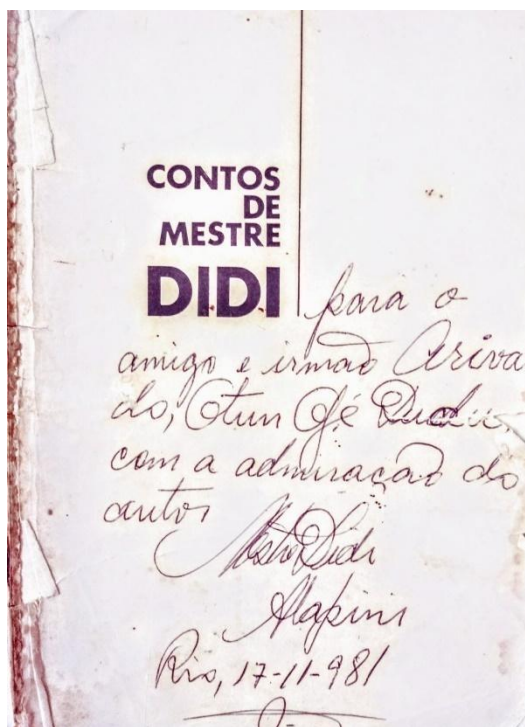 CONTOS
DE
MESTRE
DIDI
para o
amigo e irmão Ariva
do, Otun Ojé Dudu,
com a admiração do
autor
Mestre Didi
Alapini
Rio, 17-11-981